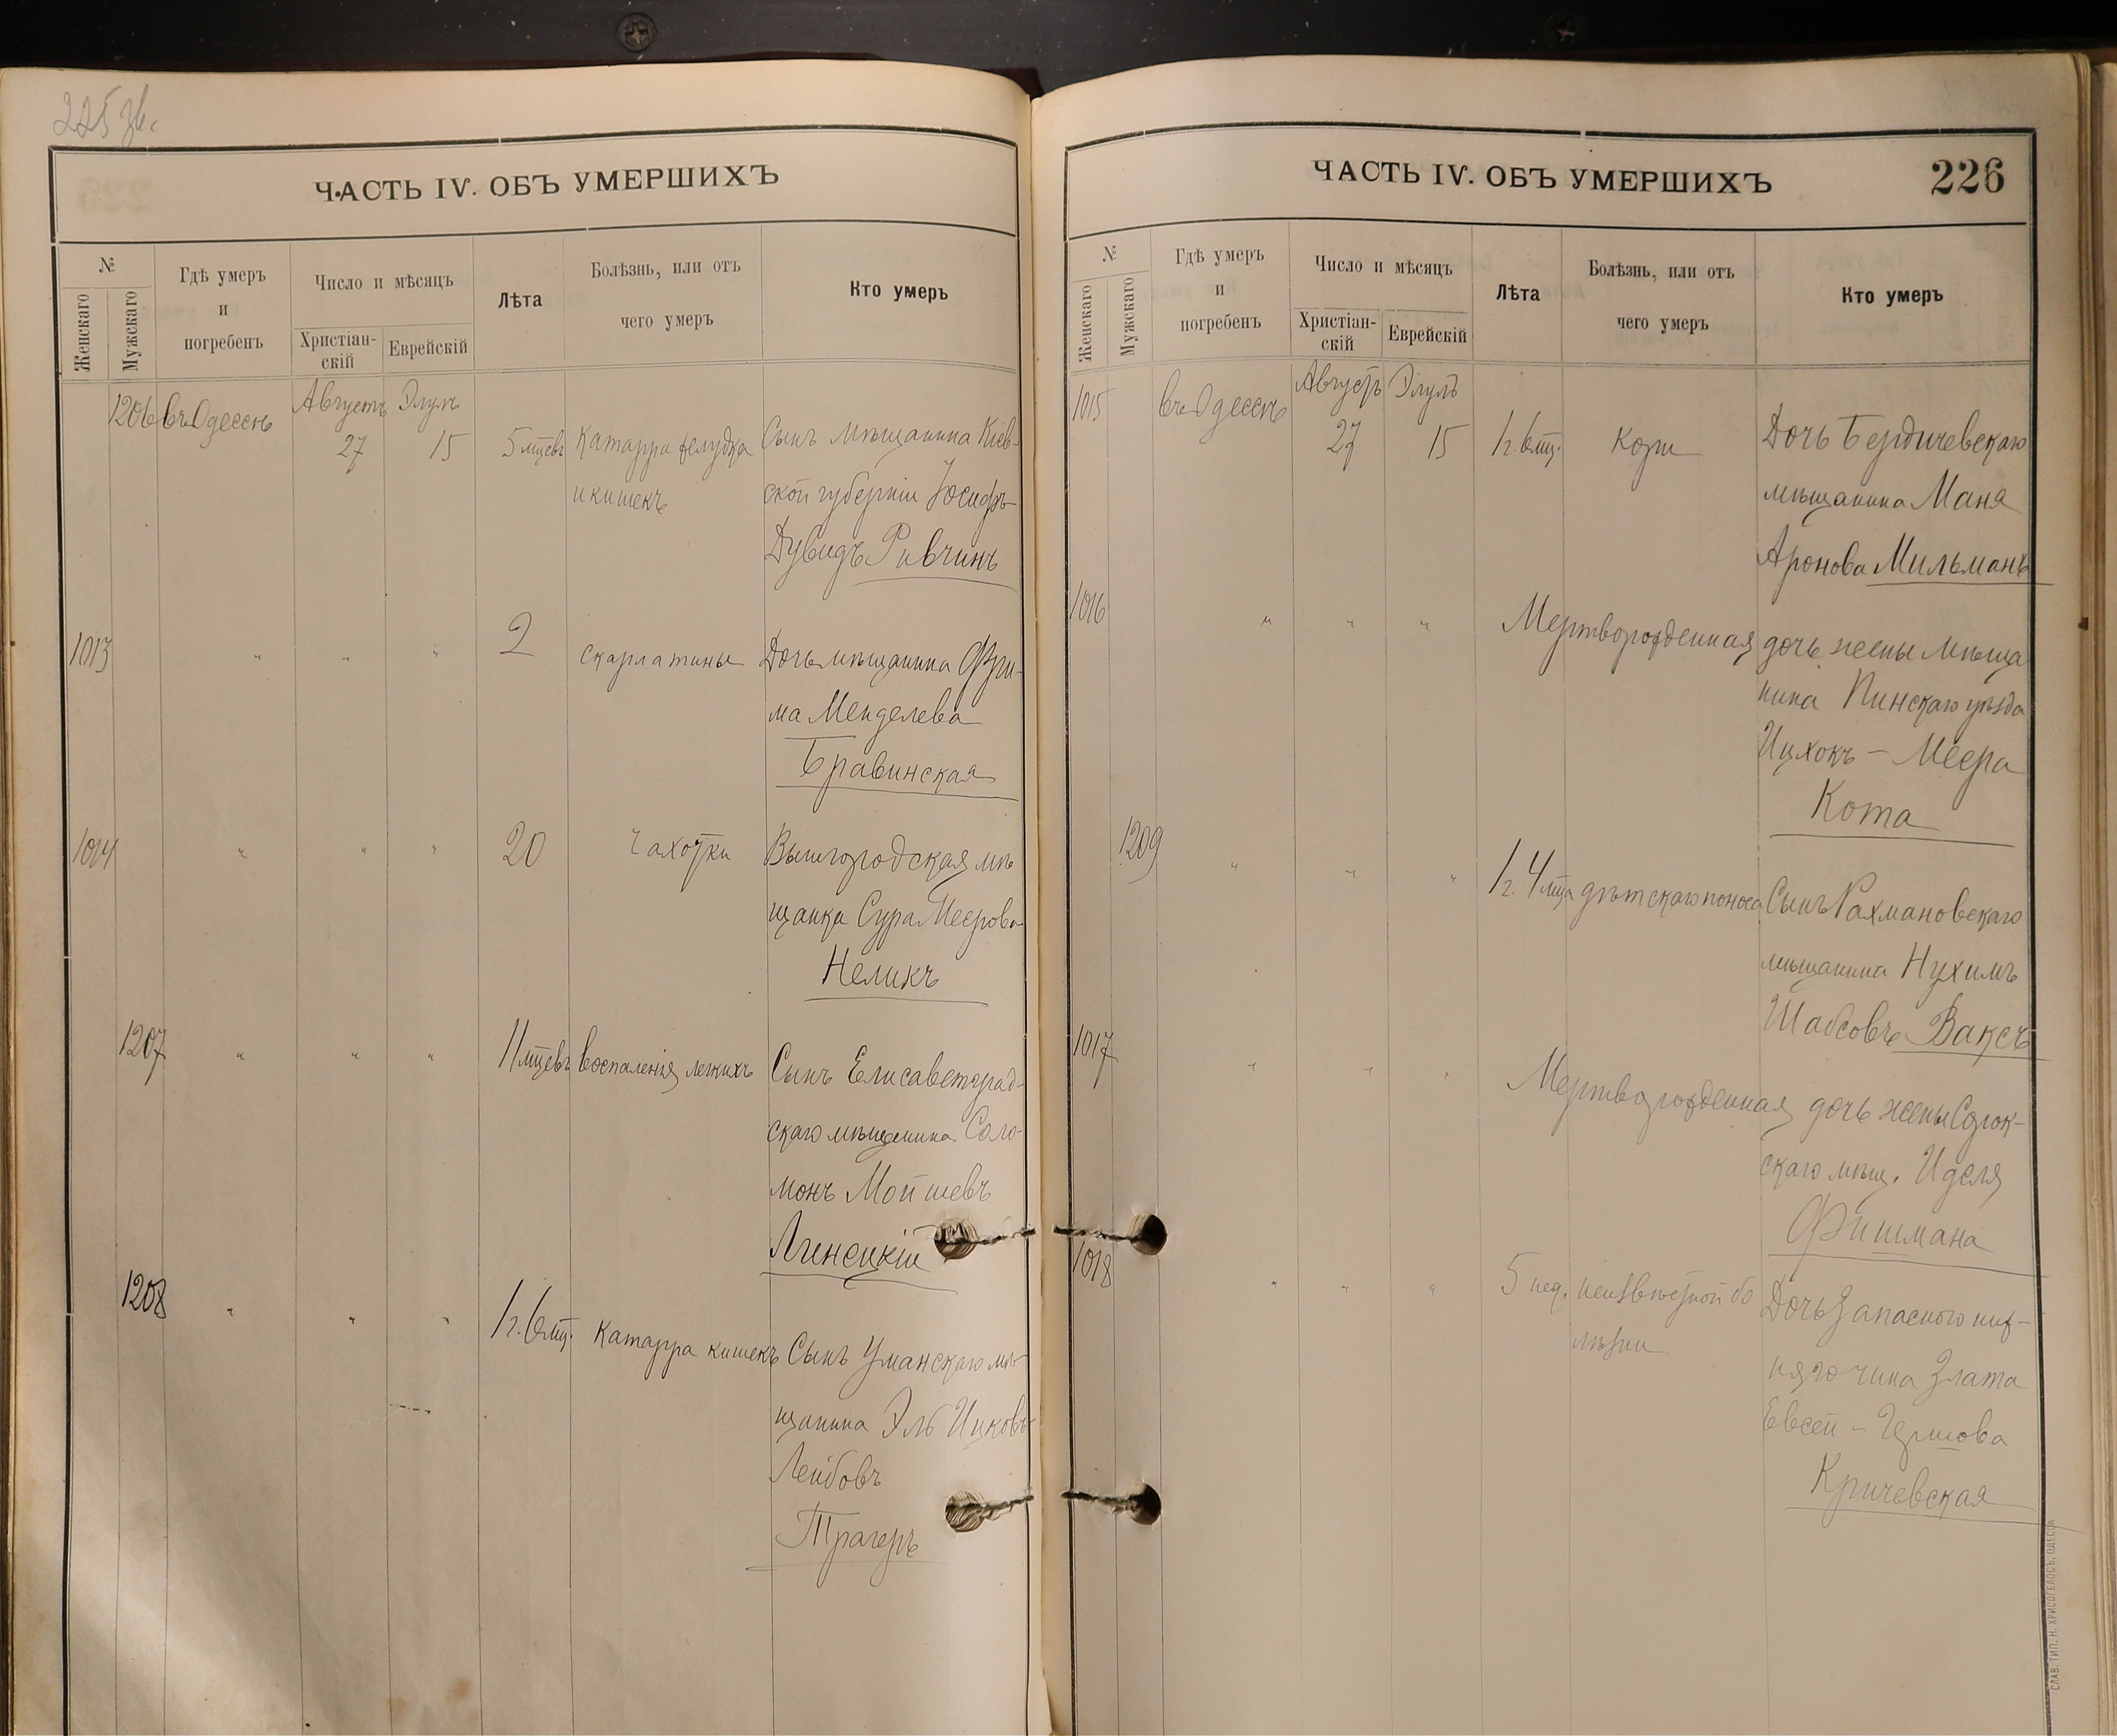 225 зв.
ЧАСТЬ IV. ОБЪ УМЕРШИХЪ
№
Женскаго
Мужскаго
Гдѣ умеръ
и
погребенъ
Число и мѣсяцъ
Христіан-
скій
Еврейскій
Лѣта
Болѣзнь, или отъ
чего умеръ
Кто умеръ
1206 въ Одессѣ Августъ Элулъ
27 15 5 мцевъ Катарра желудка Сынъ мѣщанина Кіев-
и кишекъ ской губерніи Іосифъ-
Дувидъ Ривчинъ
1013 " " " 2 скарлатины Дочь мѣщанина Фри-
ма Менделева
Бравинская
1014 " " " 20 Чахотки Вышгородская мѣ
щанка Сура Меерова
Неликъ
1207 " " " 11 мцевъ воспаленія легкихъ Сынъ Елисаветград-
скаго мѣщанина Соло-
монъ Мойшевъ
1208 " " " 1 г. 6 мц. Катарра кишекъ Сынъ Уманскаго мѣ
щанина Эль Ицковъ-
Лейбовъ
Трагеръ
ЧАСТЬ IV. ОБЪ УМЕРШИХЪ
226
№
Женскаго
Мужскаго
Гдѣ умеръ
и
погребенъ
Число и мѣсяцъ
Христіан-
скій
Еврейскій
Лѣта
Болѣзнь, или отъ
чего умеръ
Кто умеръ
1015 въ Одессѣ Августъ Элулъ
27 15 1 г. 6 мц. Кори Дочь Бердичевскаго
мѣщанина Маня
Аронова Мильманъ
1016 " " " Мертворожденная дочь жены мѣща
нина Пинскаго уѣзда
Ицхокъ - Меера
Кота
1209 " " " 1 г. 4 мца дѣтскаго поноса Сынъ Рахмановскаго
мѣщанина Нухимъ
Шабсовъ Ваксъ
1017 " " " Мертворожденная дочь жены Сорок-
скаго мѣщ. Иделя
Фишмана
1018 " " " 5 нед. неизвѣстной бо Дочь Запасного ниж-
лѣзни няго чина Злата
Евсей - Гершова
Кричевская
СЛАВ. ТИП. Н. ХРИСОГЕЛОСЪ, ОДЕССА